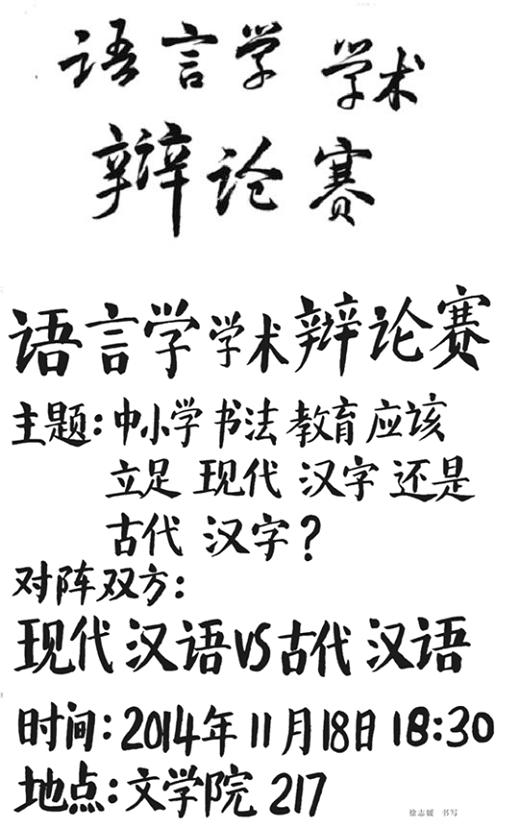 语言学 学术
辩论赛
语言学学术辩论赛
主题:中小学书法教育应该
立足 现代 汉字 还是
古代 汉字?
对阵双方:
现代汉语VS古代汉语
时间:2014年11月18日 18:30
地点:文学院 217
徐志媛 书写